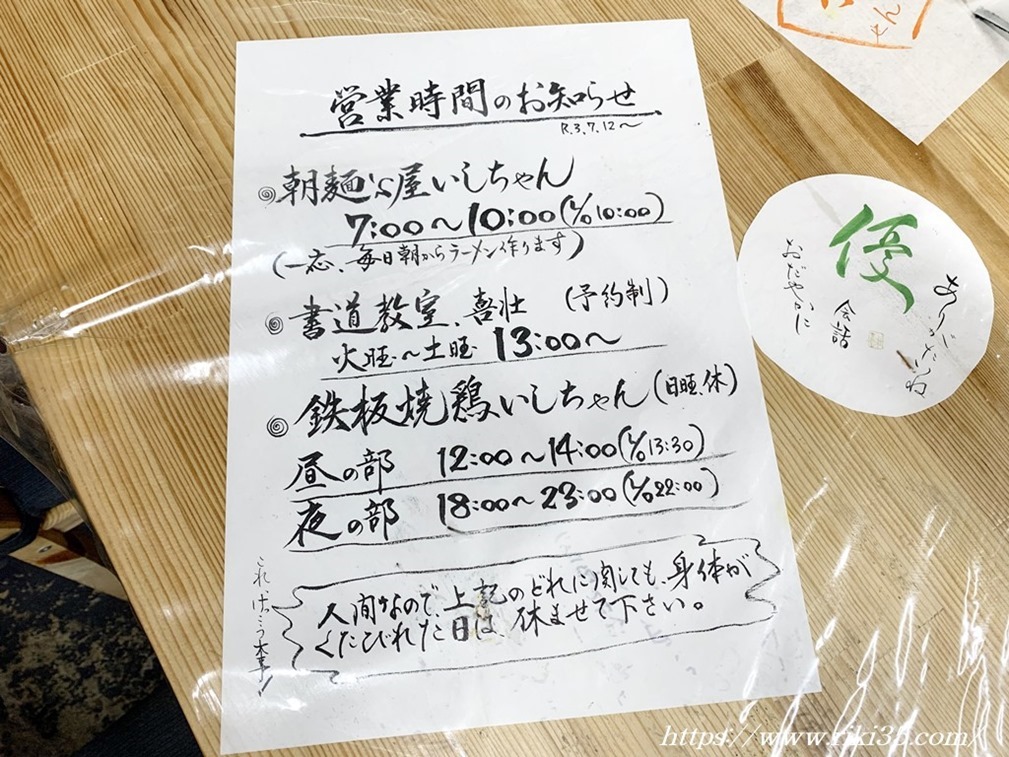 営業時間のお知らせ
R.3.7.12～
朝麺's屋いしちゃん
7:00～10:00(L/O 10:00)
(一応、毎日朝からラーメン作ります)
書道教室、喜壮 (予約制)
火旺～土旺 13:00～
鉄板焼鶏いしちゃん(日旺、休)
昼の部 12:00～14:00(L/O 13:30)
夜の部 18:00～23:00(L/O 22:00)
人間なので、上記のどれに関しても、身体が
くたびれた日は、休ませて下さい。
これ、けっこう大事!
優
ありがたいね
会話
おだやかに
https://www.riki35.com/